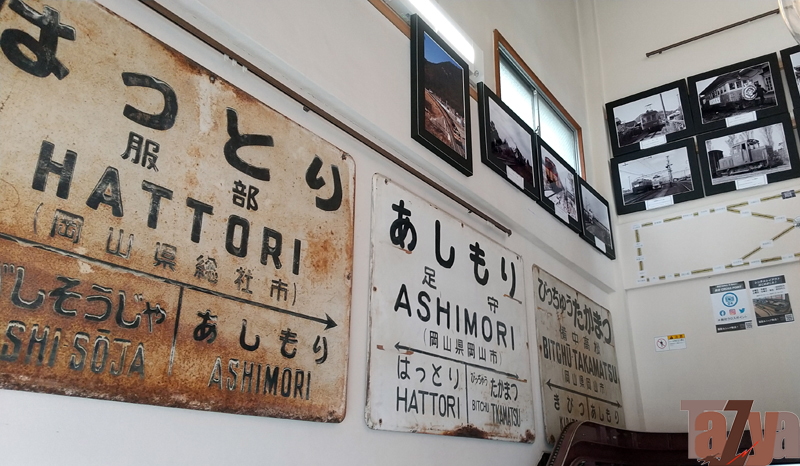 はっとり
服部
HATTORI
(岡山県総社市)
がしそうじゃ
SHI SŌJA
あしもり
ASHIMORI
あしもり
足守
ASHIMORI
(岡山県岡山市)
はっとり
HATTORI
びっちゅうたかまつ
BITCHŪ TAKAMATSU
びっちゅうたかまつ
備中高松
BITCHŪ TAKAMATSU
(岡山県岡山市)
きびつ
あしもり
TaZya